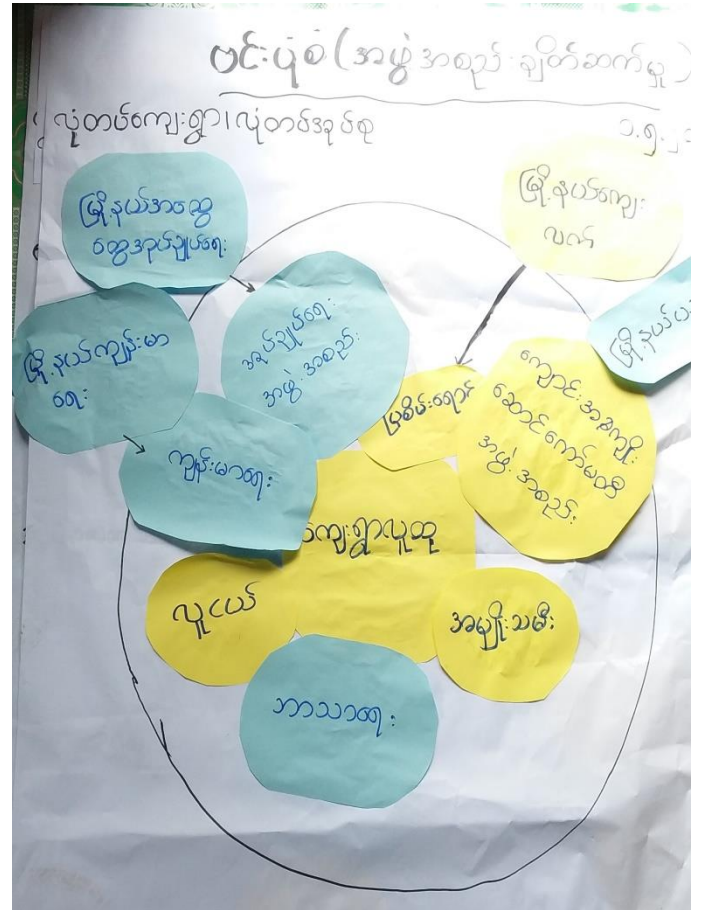 ဗင်းပုံစံ (အဖွဲ့အစည်းချိတ်ဆက်မှု)
လုံတပ်ကျေးရွာ၊ လုံတပ်အုပ်စု
၁.၅.၂၀
မြို့နယ်အထွေ
ထွေအုပ်ချုပ်ရေး
မြို့နယ်ကျေး
လက်
မြို့နယ်ကျန်းမာ
ရေး
အုပ်ချုပ်ရေး
အဖွဲ့အစည်း
မြို့နယ်ပ
မြစိမ်းရောင်
ကျောင်းအကျိုး
ဆောင်ကော်မတီ
အဖွဲ့အစည်း
ကျန်းမာရေး
ကျေးရွာလူထု
လူငယ်
အမျိုးသမီး
ဘာသာရေး